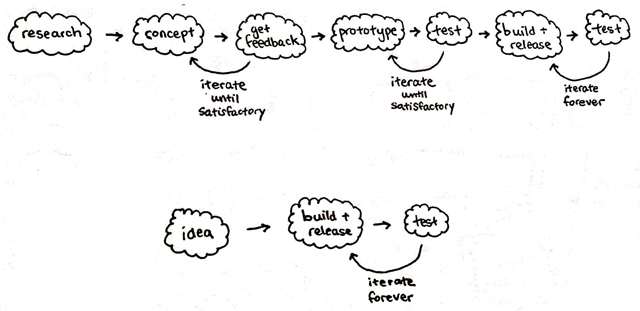 research
concept
get
feedback
prototype
test
build +
release
test
iterate
until
satisfactory
iterate
until
satisfactory
iterate
forever
idea
build +
release
test
iterate
forever